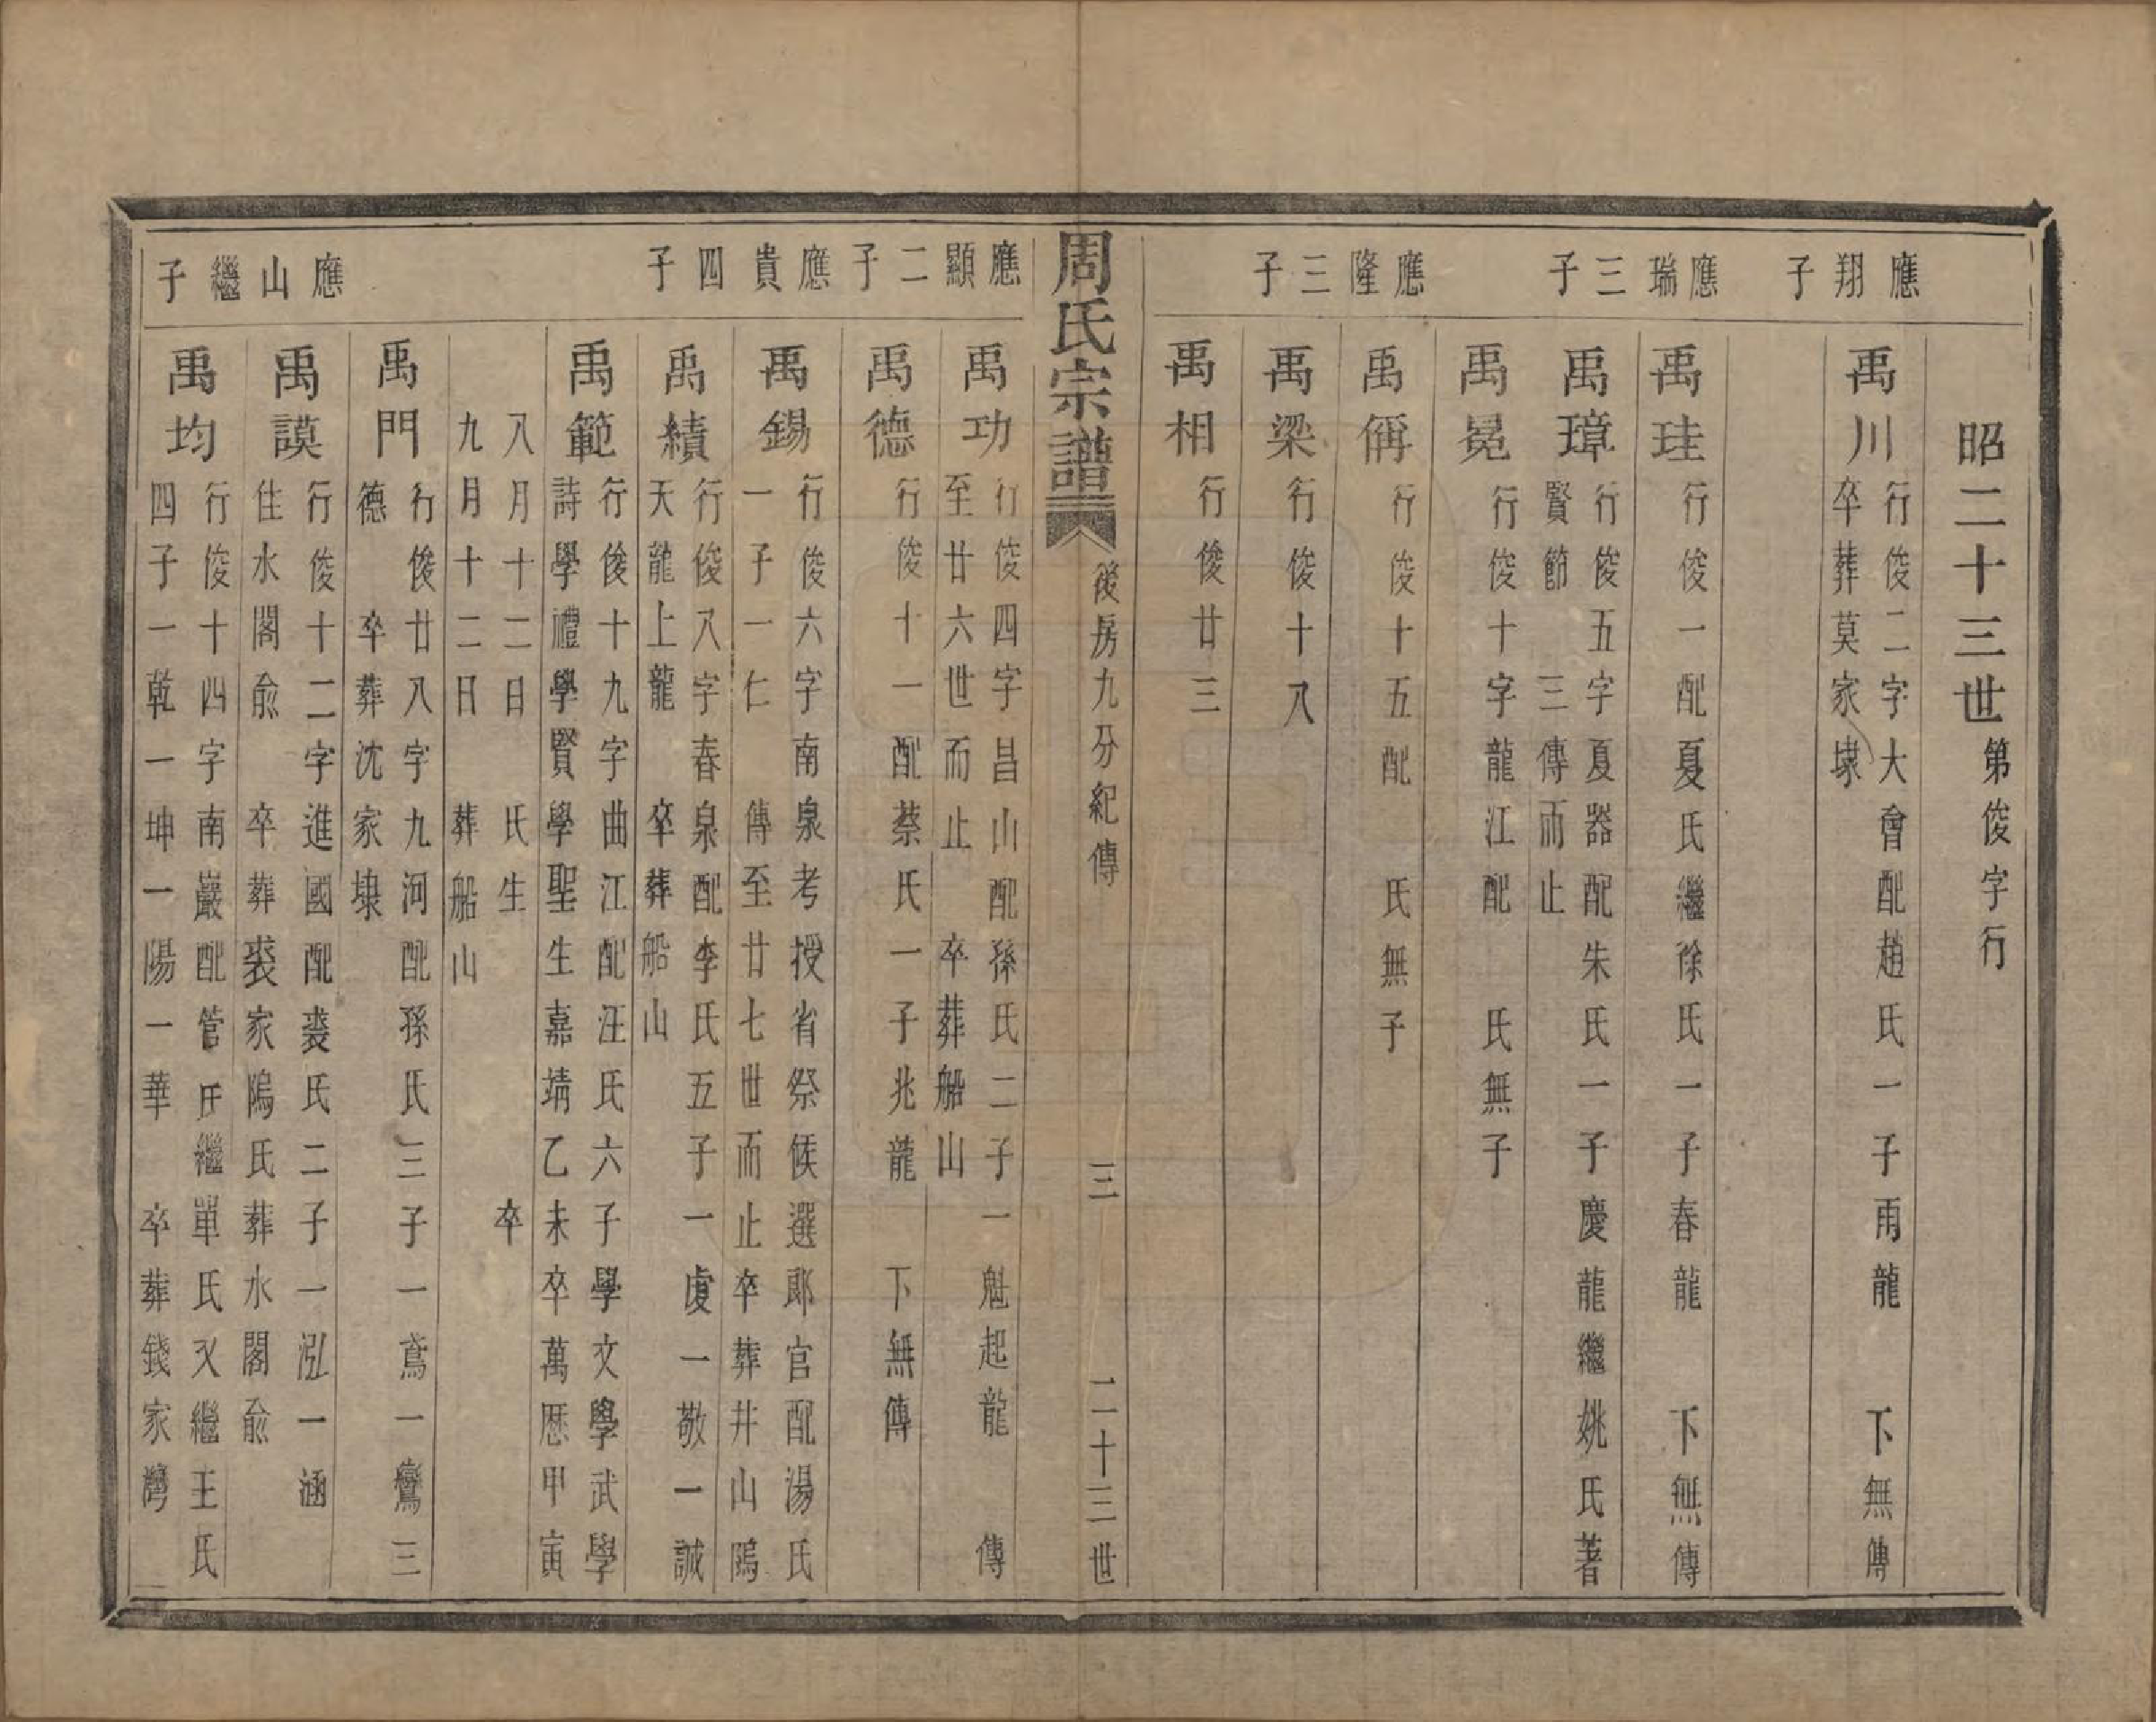 昭二十三世第俊字行
應翔子
禹川行俊二字大會配趙氏一子雨龍　下無傳
卒葬莫家埭
應瑞三子
禹珪行俊一配夏氏繼徐氏一子春龍　下無傳
禹璋行俊五字夏器配朱氏一子慶龍繼姚氏著
賢節　三傳而止
禹冕行俊十字龍江配　氏無子
應隆三子
禹稱行俊十五配　氏無子
禹梁行俊十八
禹相行俊廿三
周氏宗譜　後房九分紀傳　三　二十三世
應顯二子
禹功行俊四字昌山配孫氏二子一魁起龍　傳
至廿六世而止　卒葬船山
禹德行俊十一配蔡氏一子兆龍　下無傳
應貴四子
禹錫行俊六字南泉考授省祭候選郎官配湯氏
一子一仁　傳至廿七世而止卒葬井山隖
禹績行俊八字春泉配李氏五子一虞一敬一誠
天龍上龍　卒葬船山
禹範行俊十九字曲江配汪氏六子學文學武學
詩學禮學賢學聖生嘉靖乙未卒萬歷甲寅
八月十二日　氏生　卒
九月十二日　葬船山
禹門行俊廿八字九河配孫氏三子一鳶一鸞三
德　卒葬沈家埭
應山繼子
禹謨行俊十二字進國配裘氏二子一泓一涵
住水閣俞　卒葬裘家隖氏葬水閣俞
禹均行俊十四字南巖配管氏繼單氏又繼王氏
四子一乾一坤一陽一華　卒葬錢家灣